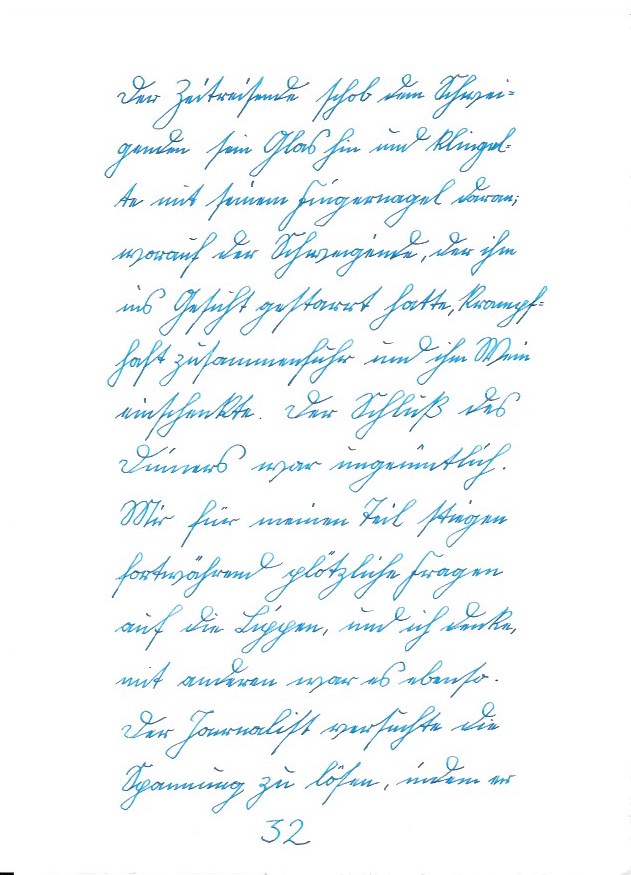 Der Zeitreisende schob dem Schwei=
genden sein Glas hin und klingel=
te mit seinem Fingernagel daran;
worauf der Schweigende, der ihm
ins Gesicht gestarrt hatte, krampf=
haft zusammenfuhr und ihm Wein
einschenkte. Der Schluß des
Dinners war ungemütlich.
Mir für meinen Teil stiegen
fortwährend plötzliche Fragen
auf die Lippen, und ich denke,
mit anderen war es ebenso.
Der Journalist versuchte die
Spannung zu lösen, indem er
32